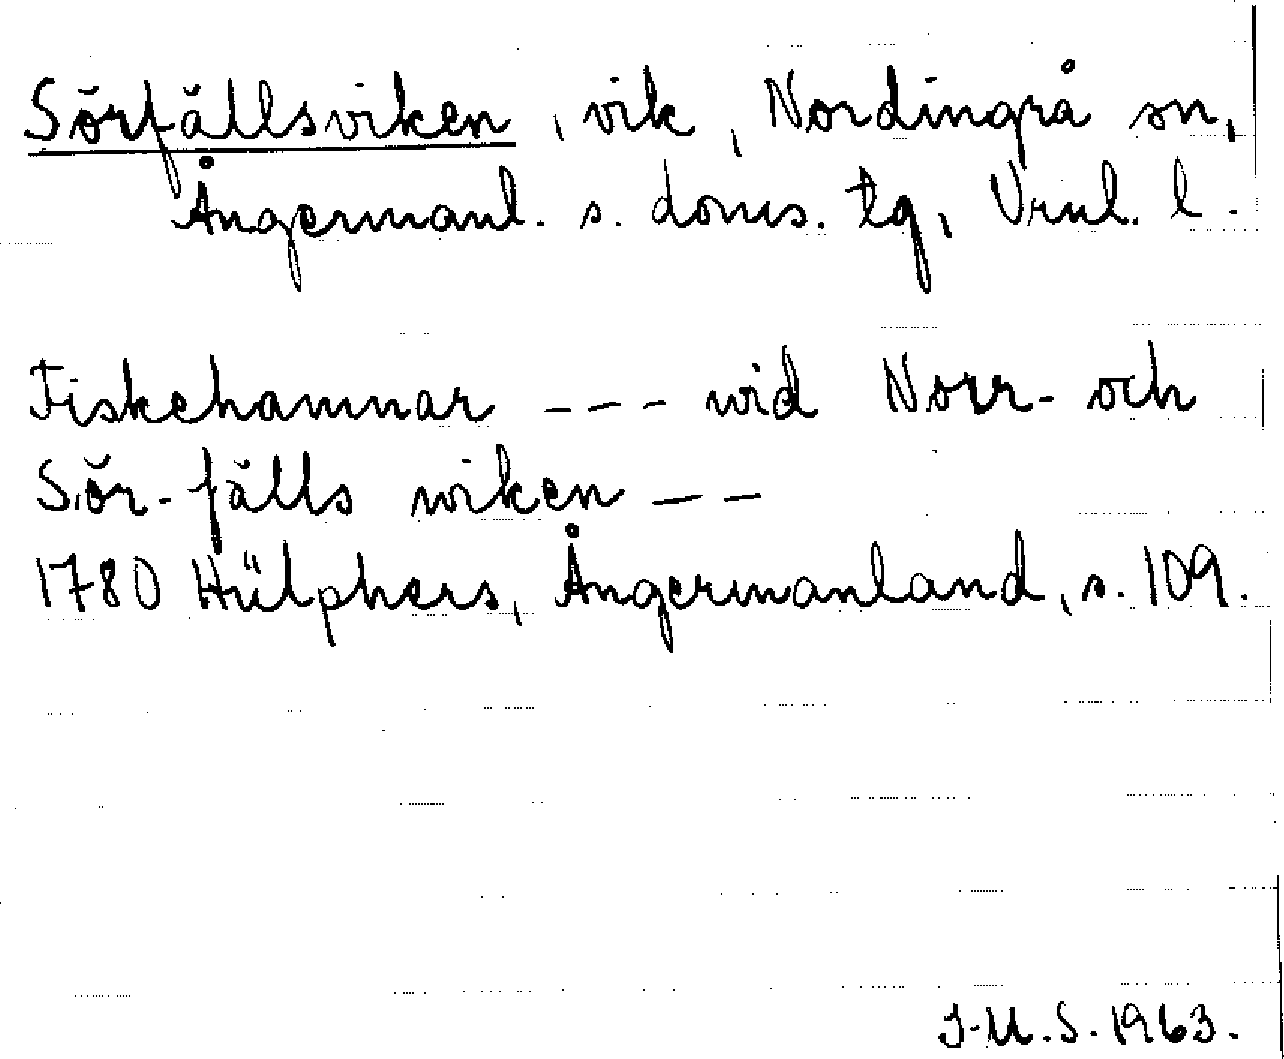 Sörfällsviken, vik, Nordingrå sn,
Ångermanl. s. doms. tg, Vrnl. l.
Fiskehamnar --- wid Norr- och
Sör-fälls wiken --
1780 Hülphers, Ångermanland, s. 109.
I-M.S. 1963.